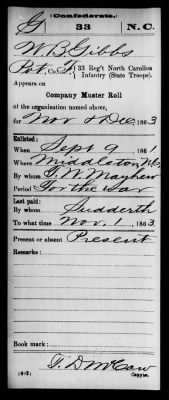 Confederate.
G 33 N.C.
W. B. Gibbs
Pvt, Co. F, 33 Reg't North Carolina
Infantry (State Troops).
Appears on
Company Muster Roll
of the organization named above,
for Nov & Dec, 1863
Enlisted:
When Sept 9, 1861
Where Middleton N.C.
By whom T. W. Mayhew
Period For the War
Last paid:
By whom Sudderth
To what time Nov. 1, 1863
Present or absent Present
Remarks:
Book mark:
(642) T. D. McCaw
Copyist.